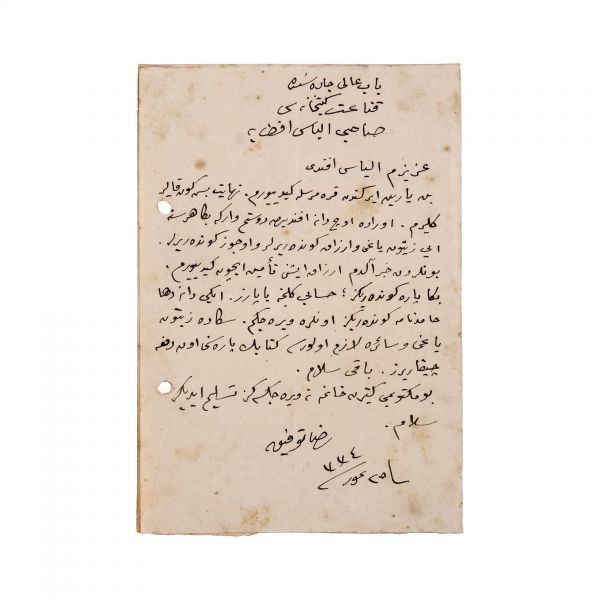 باب عالی جاده‌سنده
قناعت کتبخانه‌سی
صاحبی الیاس افندی‌یه
عزیزم الیاس افندی
بن یارین ایرکندن قره مرسله کیدییورم. نهایت بش کون قالیر
کلیرم. اوراده اوچ دانه افندیدن دوستم وارکه بکا هر سنه
ایی زیتون یاغی و ارزاق کوندەریرلر و اوجوز کوندەریرلر.
بونلردن خبر آلدم ارزاق ایشنی تأمین ایچون کیدییورم.
بکا پاره کوندەریکز؛ حسابی کلنجه یاپارز. ایکی دانه دها
حامدنامه کوندەریکز اونلره ویره‌جکم. سزکاده زیتون
یاغی و سائره لازم اولورسه کتابك پاره‌سنی اون دفعه
چیقاریرز. باقی سلام.
بو مکتوبمی کتیرن خانمه نه ویره‌جکسه‌کز تسلیم ایدیکز
سلام.
رضا توفیق
٣٣٤